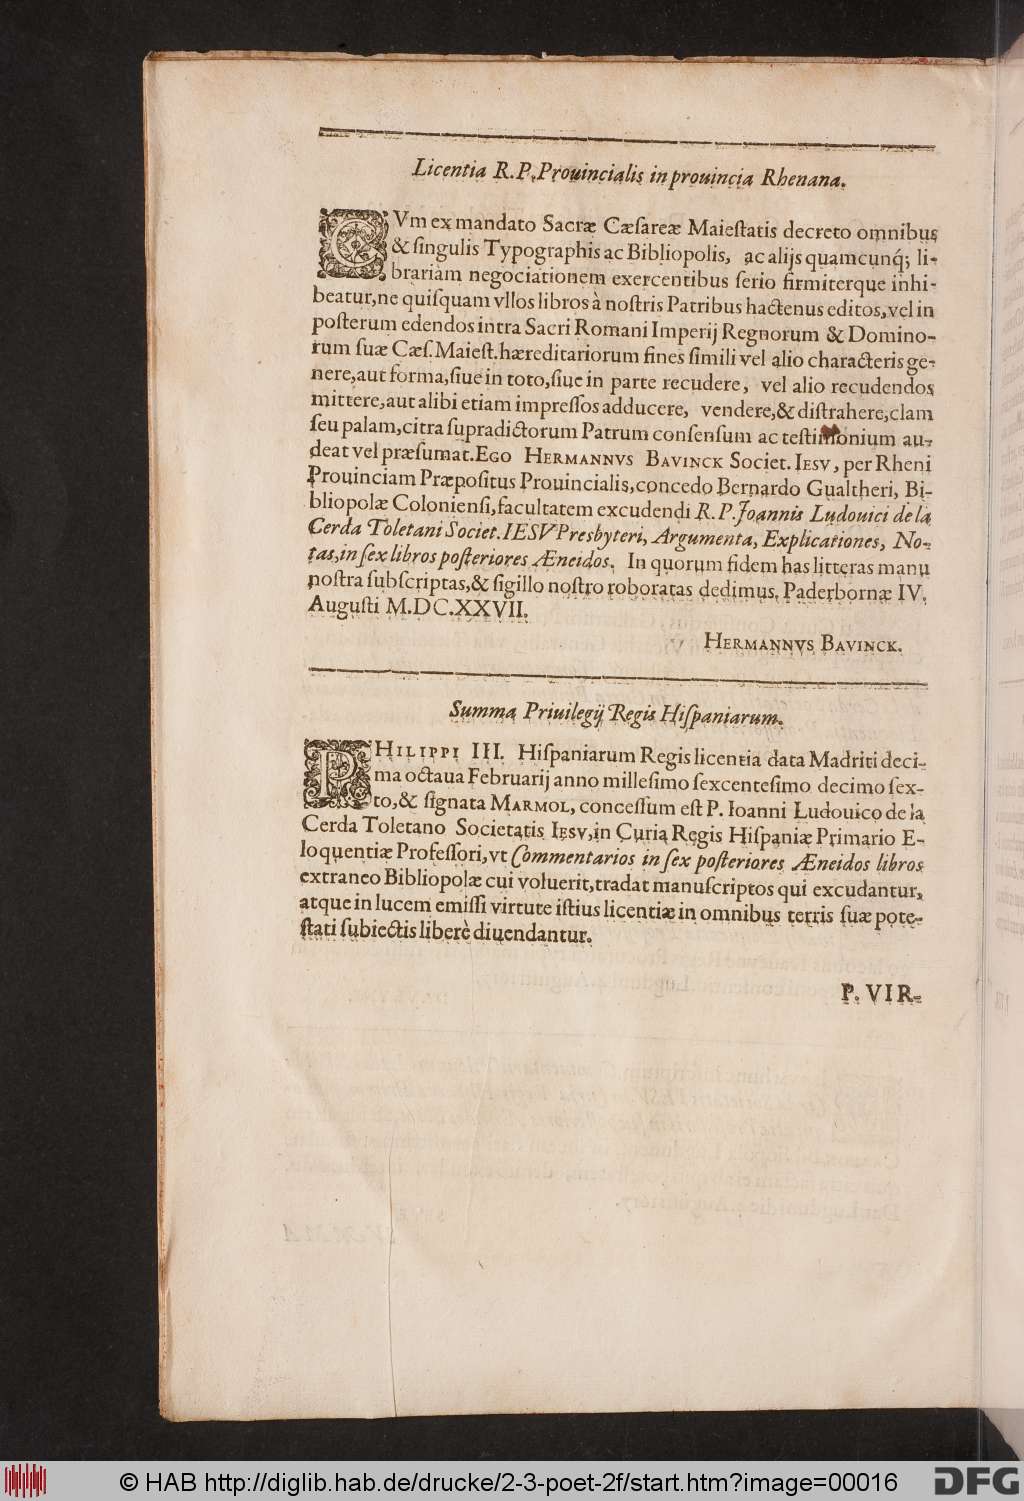 Licentia R. P. Prouincialis in prouincia Rhenana.
CVm ex mandato Sacræ Cæſareæ Maieſtatis decreto omnibus
& ſingulis Typographis ac Bibliopolis, ac alijs quamcunq́; li-
brariam negociationem exercentibus ſerio firmiterque inhi-
beatur, ne quiſquam vllos libros à noſtris Patribus hactenus editos, vel in
poſterum edendos intra Sacri Romani Imperij Regnorum & Domino-
rum ſuæ Cæſ. Maieſt. hæreditariorum fines ſimili vel alio characteris ge-
nere, aut forma, ſiue in toto, ſiue in parte recudere, vel alio recudendos
mittere, aut alibi etiam impreſſos adducere, vendere, & diſtrahere, clam
ſeu palam, citra ſupradictorum Patrum conſenſum ac teſtimonium au-
deat vel præſumat. EGO HERMANNVS BAVINCK Societ. IESV, per Rheni
Prouinciam Præpoſitus Prouincialis, concedo Bernardo Gualtheri, Bi-
bliopolæ Colonienſi, facultatem excudendi R. P. Joannis Ludouici de la
Cerda Toletani Societ. IESV Presbyteri, Argumenta, Explicationes, No-
tas, in ſex libros poſteriores Æneidos. In quorum fidem has litteras manu
noſtra ſubſcriptas, & ſigillo noſtro roboratas dedimus. Paderbornæ IV.
Auguſti M.DC.XXVII.
HERMANNVS BAVINCK.
Summa Priuilegij Regis Hiſpaniarum.
PHILIPPI III. Hiſpaniarum Regis licentia data Madriti deci-
ma octaua Februarij anno milleſimo ſexcenteſimo decimo ſex-
to, & ſignata MARMOL, conceſſum eſt P. Ioanni Ludouico de la
Cerda Toletano Societatis IESV, in Curia Regis Hiſpaniæ Primario E-
loquentiæ Profeſſori, vt Commentarios in ſex poſteriores Æneidos libros
extraneo Bibliopolæ cui voluerit, tradat manuſcriptos qui excudantur,
atque in lucem emiſſi virtute iſtius licentiæ in omnibus terris ſuæ pote-
ſtati ſubiectis liberè diuendantur.
P. VIR-
© HAB http://diglib.hab.de/drucke/2-3-poet-2f/start.htm?image=00016
DFG